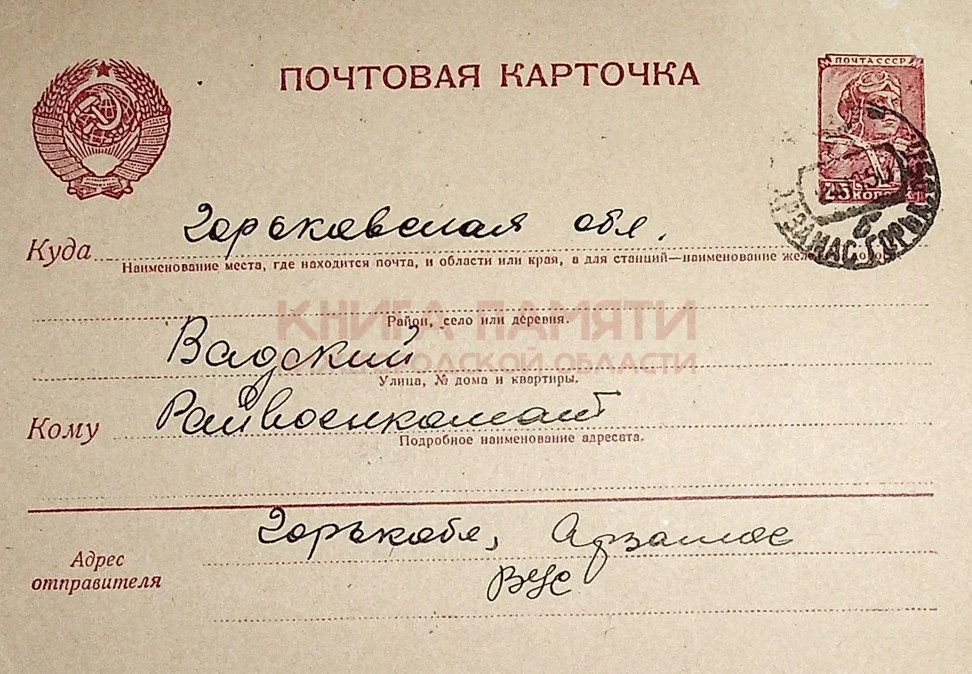 ПОЧТОВАЯ КАРТОЧКА
ПОЧТА СССР
КОП
АРЗАМАС ГОРЬК
б
Куда Горьковская обл.
Наименование места, где находится почта, и области или края, а для станций—наименование
КНИГА ПАМЯТИ
Район, село или деревня.
Вадский
ОБЛАСТИ
Улица, № дома и квартиры.
Кому Райвоенкомат
Подробное наименование адресата.
Адрес отправителя
Горькобл, Арзамас
ВУС